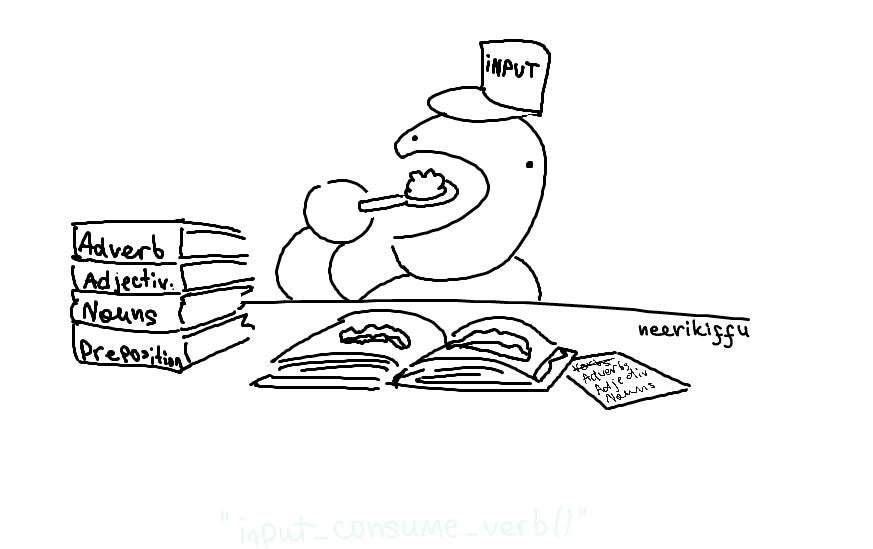 iNPUT
Adverb
Adjectiv.
Nouns
Preposition
neerikiffu
Verbs
Adverbs
Adjectiv
Nouns
"input_consume_verb()"